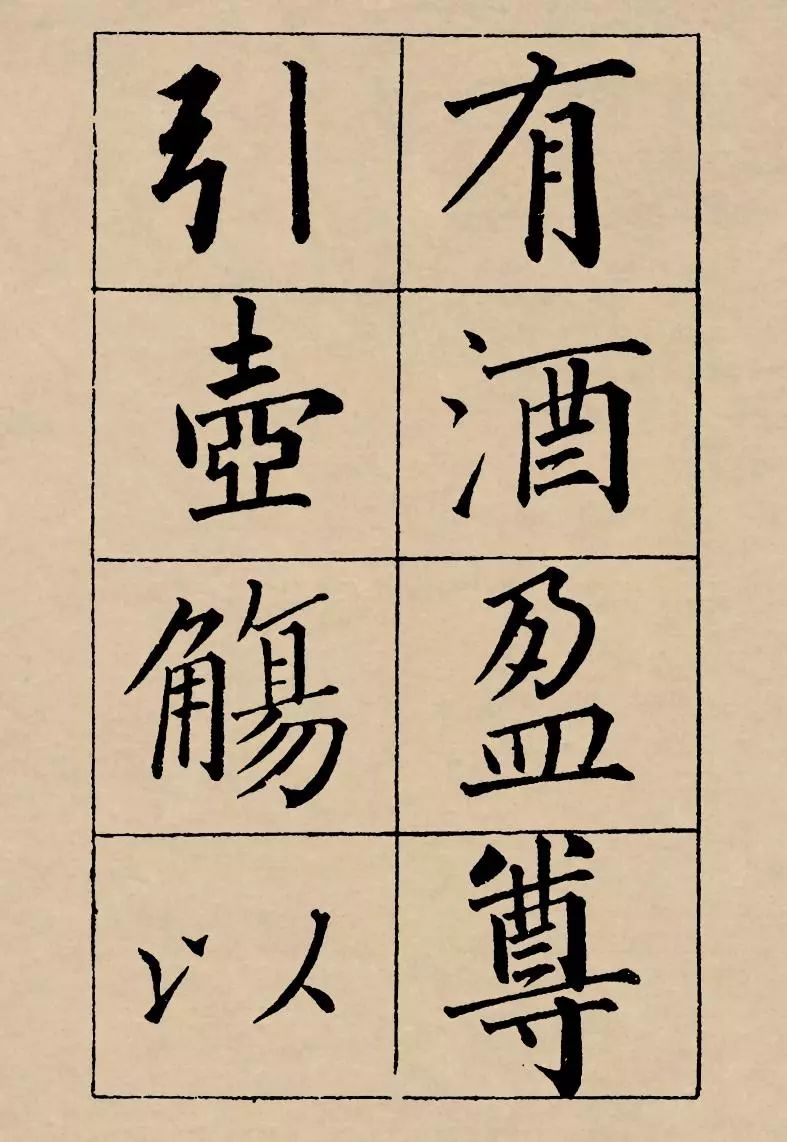 有酒盈尊
引壺觴以